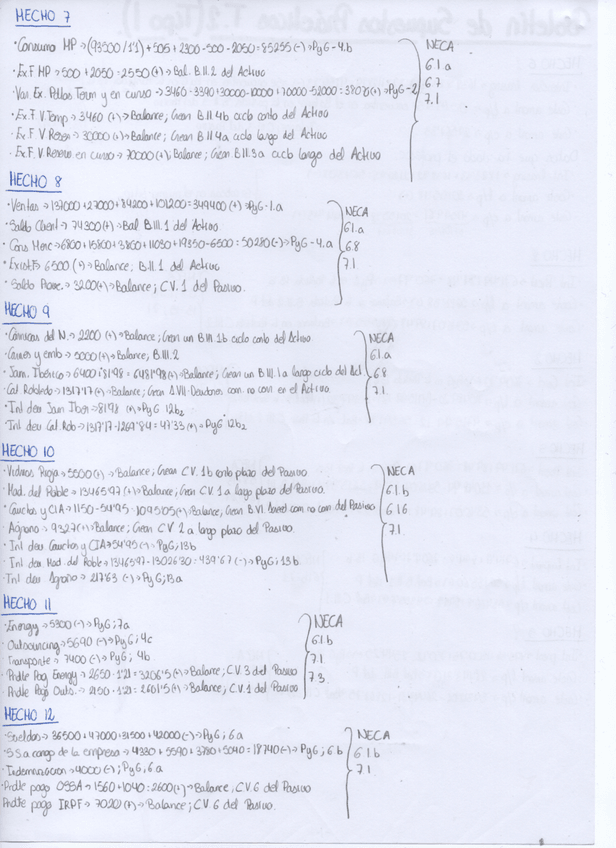 HECHO 7
· Consumo MP → (93500/1'1) + 505 + 2300 - 500 - 2050 = 85255 (-) → PyG - 4.b
· Ex F MP → 500 + 2050 = 2550 (+) → Bal. B.II.2 del Activo
· Var Ex. Pdtos Term y en curso → 3460 - 3390 + 30000 - 10000 + 70000 - 52000 = 38078 (+) → PyG - 2
· Ex. F. V. Temp → 3460 (+) → Balance; Crean B.II 4b ciclo corto del Activo
· Ex F. V Reser → 30000 (+) → Balance; Crean B.II 4a ciclo largo del Activo
· Ex F. V. Reserva en curso → 70000 (+); Balance; Crean B.II.3a ciclo largo del Activo
NECA
6.1.a
6.7
7.1
HECHO 8
· Ventas → 137000 + 27000 + 84200 + 101200 = 349400 (+) → PyG - 1.a
· Saldo Client → 74300 (+) → Bal B.III.1 del Activo
· Cons Merc → 6800 + 15800 + 3800 + 11030 + 19350 - 6500 = 50280 (-) → PyG - 4.a
· Exist F → 6500 (+) → Balance; B.II.1 del Activo
· Saldo Prove. → 3200 (+) → Balance; C.V.1 del Pasivo.
NECA
6.1.a
6.8
7.1
HECHO 9
· Cárnicas del N. → 2200 (+) → Balance; Crean un B.III 1b ciclo corto del Activo
· Cauces y emb → 5000 (+) → Balance; B.III.2
· Jam. Ibérico → 6400 + 81'98 = 6481'98 (+) → Balance; Crean un B.III.1a largo ciclo del Act
· Cal. Robledo → 1317'17 (+) → Balance; Crean A.VII-Deudores com. no corr en el Activo
· Int dev Jam Iber → 81'98 (+) → PyG 12b2
· Int dev Cal. Rob → 1317'17 - 1269'84 = 47'33 (+) → PyG 12b2
NECA
6.1.a
6.8
7.1
HECHO 10
· Vidrios Rioja → 5500 (+) → Balance; Crean C.V. 1b corto plazo del Pasivo
· Mad. del Roble → 13465'97 (+) → Balance; Crean C.V 1a largo plazo del Pasivo.
· Cauchos y CIA → 1150 - 54'95 = 1095'05 (+) → Balance; Crean B.VI. Acreed com no corr del Pasivo
· Agrono → 9327 (+) → Balance; Crean C.V. 2 a largo plazo del Pasivo
· Int dev Cauchos y CIA → 54'95 (-) → PyG; 13b
· Int. dev. Mad. del Roble → 13465'97 - 13026'30 = 439'67 (-) → PyG; 13b.
· Int dev Agrono → 217'63 (-) → PyG; 13a
NECA
6.1.b
6.16
7.1
HECHO 11
· Energy → 5300 (-) → PyG; 7a
· Outsourcing → 5690 (-) → PyG; 4c
· Transporte → 7400 (-) → PyG; 4b.
· Pndte Pag. Energy → 2650 · 1'21 = 3206'5 (+) → Balance; C.V. 3 del Pasivo
· Pndte Pag Outs. → 2150 · 1'21 = 2601'5 (+) → Balance; C.V.1 del Pasivo
NECA
6.1.b
7.1
7.3
HECHO 12
· Sueldos → 36500 + 47000 + 31500 + 42000 (-) → PyG; 6.a
· S.S a cargo de la empresa → 4330 + 5590 + 3780 + 5040 = 18740 (-) → PyG; 6.b
· Indemnización → 4000 (-); PyG, 6.a
· Pndte pago OSSA → 1560 + 1040 = 2600 (+) → Balance; C.V. 6 del Pasivo
Pndte pago IRPF → 7020 (+) → Balance; C.V. 6 del Pasivo.
NECA
6.1.b
7.1